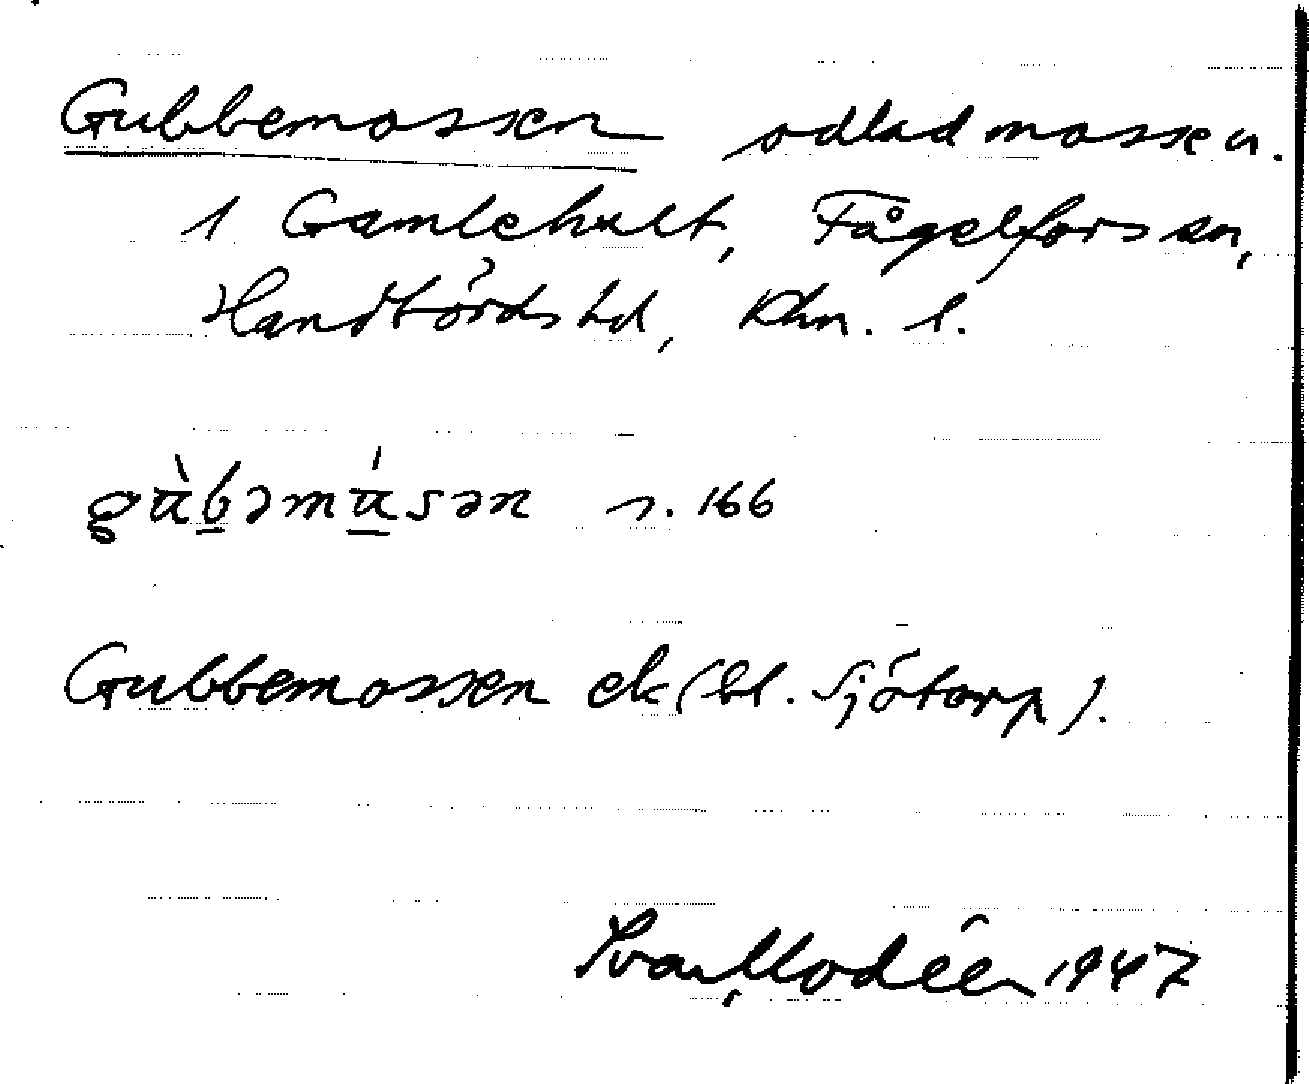 Gubbemossen odlad mossen.
1 Gamlehult, Fågelfors sn,
Handbörds hd, Klm. l.
gu̇̀bəmúsən s. 166
Gubbemossen ek (bl. Sjötorp).
Ivar Modéer 1947